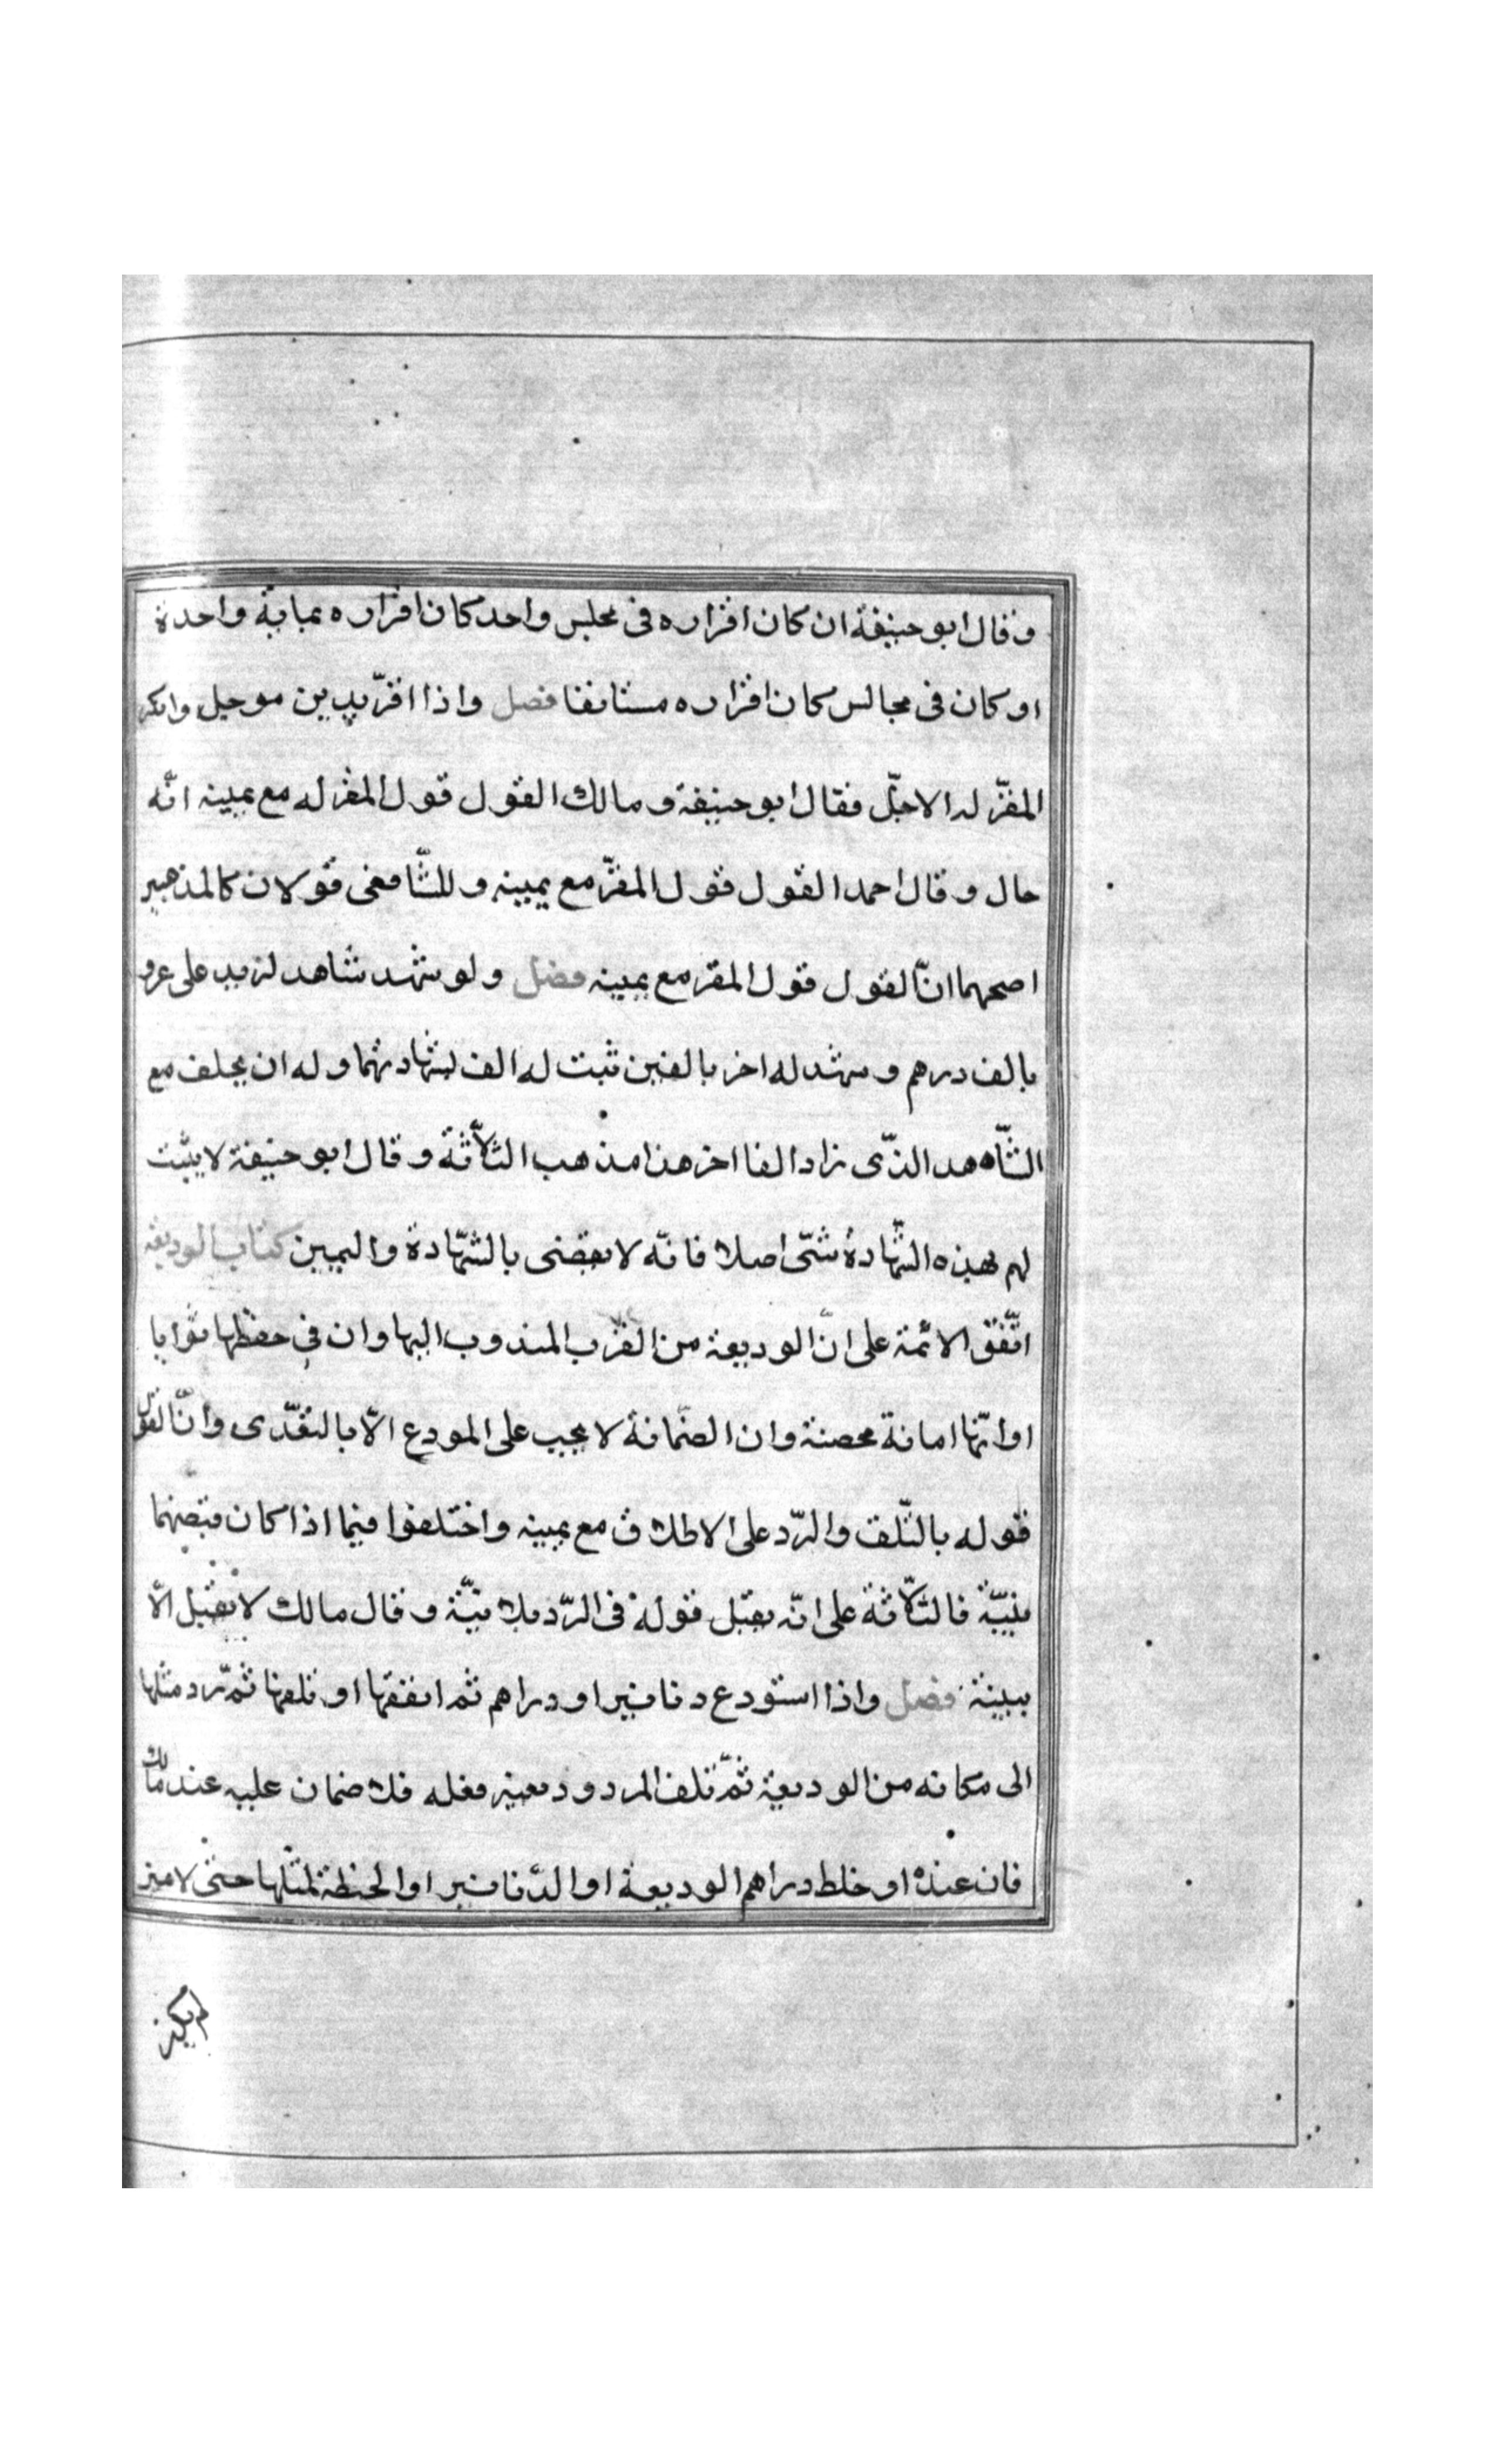 وقال ابو حنيفة ان كان اقراره فى مجلس واحد كان اقراره بماية واحدة
او كان فى مجالس كان اقراره مستانفا فصل واذا اقرّ بدين موجل وانكر
المقرّ له الاجلّ فقال ابو حنيفة ومالك القول قول المقر له مع يمينه انّه
حال وقال احمد القول قول المقرّ مع يمينه وللشّافعى قولان كالمذهبين
اصحهما انّ القول قول المقر مع يمينه فصل ولو شهد شاهد لزيد على عمرو
بالف درهم وشهد له اخر بالفين ثبت له الف بشهادتهما وله ان يحلف مع
الشّاهد الذّى زاد الفا اخر هذا مذهب الثّلاثة وقال ابو حنيفة لا يثبت
لهم بهذه الشّهادة شىّ اصلا فانّه لا يقضى بالشّهادة واليمين كتاب الوديعة
اتّفق الائمة على انّ الوديعة من القرب المندوب اليها وان فى حفظها ثوابا
او انّها امانة محضة وان الضمانة لا يجب على المودع الاّ بالتعّدى وانّ القول
قوله بالتّلف والرّد على الاطلاق مع يمينه واختلفوا فيما اذا كان قبضهما
ببيّنة فالثّلاثة على انّه يقبل قوله فى الرّد بلا بيّنة وقال مالك لا يقبل الاّ
ببينة فصل واذا استودع دنانير او دراهم ثم انفقها او تلفها ثم ردّ مثلها
الى مكانه من الوديعة ثمّ تلف المردود بعينه فعله فلا ضمان عليه عند مالك
فان عنده او خلط دراهم الوديعة او الدّنانير او الحنطة بمثلها حتى لا ميز